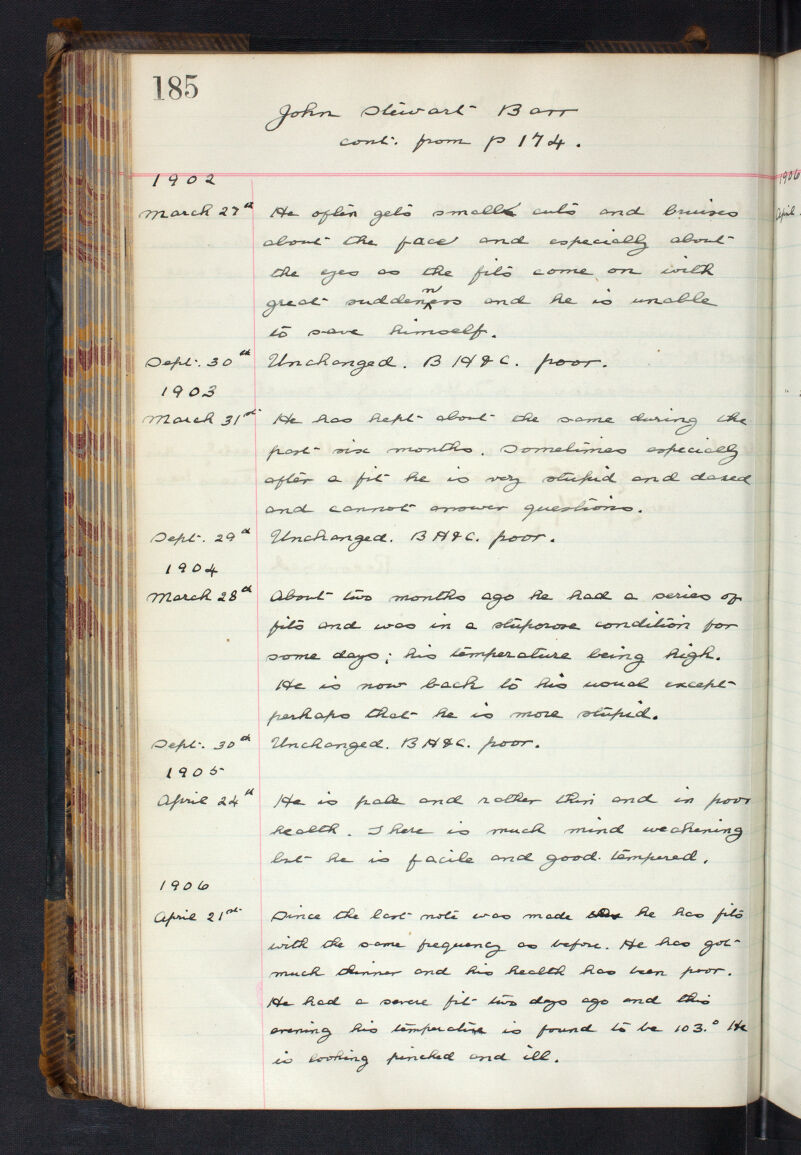 185
John Stewart Barr
cont. from p 174.
1902
March 27th He often gets small cuts and bruises
about the face and especially about
the eyes as the fits come on with
great suddenness and he is unable
to save himself.
Sept. 30th Unchanged. B H & C. poor.
1903
March 31st He has kept about the same during the
past six months. Sometimes especially
after a fit he is very stupid and dazed
and cannot answer questions.
Sept. 29th Unchanged. B H & C. poor.
1904
March 28th About two months ago he had a series of
fits and was in a stuporose condition for
some days; his temperature being high.
He is now back to his usual except
perhaps that he is more stupid.
Sept. 30th Unchanged. B H & C. poor.
1905
April 24th He is pale and rather thin and in poor
health. There is much mind weakening
but he is facile and good tempered.
1906
April 21st Since the last note was made he has fits
with the same frequency as before. He has got
much thinner and his health has been poor.
He had a severe fit two days ago and this
evening his temperature is found to be 103.° He
is looking pinched and ill.
1906
April